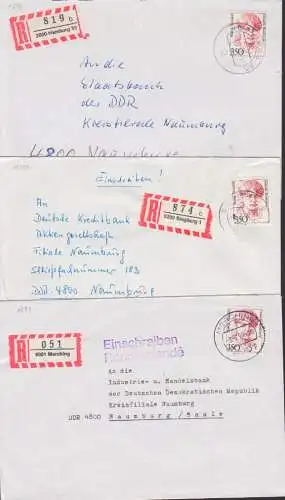 R
819 b
2000 Hamburg 11
An die
Staatsbank
der DDR
Kreisfiliale Naumburg
4800 Naumburg
350
Einschreiben!
R
874 c
5200 Siegburg 1
An
Deutsche Kreditbank
Aktiengesellschaft
Filiale Naumburg
Schließfachnummer 183
DDR-4800 Naumburg
350
R
051
8901 Merching
Einschreiben
An die
Industrie- u. Handelsbank
der Deutschen Demokratischen Republik
Kreisfiliale Naumburg
DDR 4800 Naumburg/Saale
350